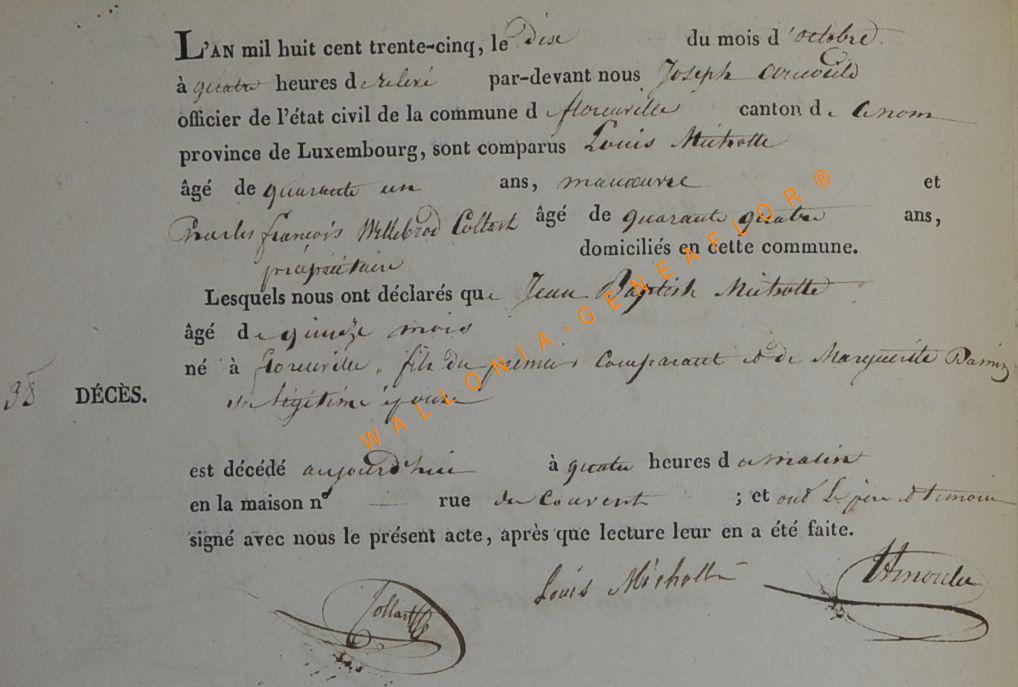 L'AN mil huit cent trente-cinq, le dix du mois d'octobre
à quatre heures de relevé par-devant nous Joseph Arnould
officier de l'état civil de la commune de florenville canton de ce nom
province de Luxembourg, sont comparus Louis Michotte
âgé de quarante un ans, manœuvre et
Charles françois Willebrod Collart âgé de quarante quatre ans,
propriétaire domiciliés en cette commune.
Lesquels nous ont déclarés que Jean Baptiste Michotte
âgé de quinze mois
né à florenville, fils du premier comparant et de Marguerite
38 DÉCÈS. sa légitime épouse
est décédé aujourd'hui à quatre heures du matin
en la maison n° rue du Couvent ; et ont le père et témoin
signé avec nous le présent acte, après que lecture leur en a été faite.
Collart Louis Michotte Arnould
WALLONIA-GENEAFLOR®